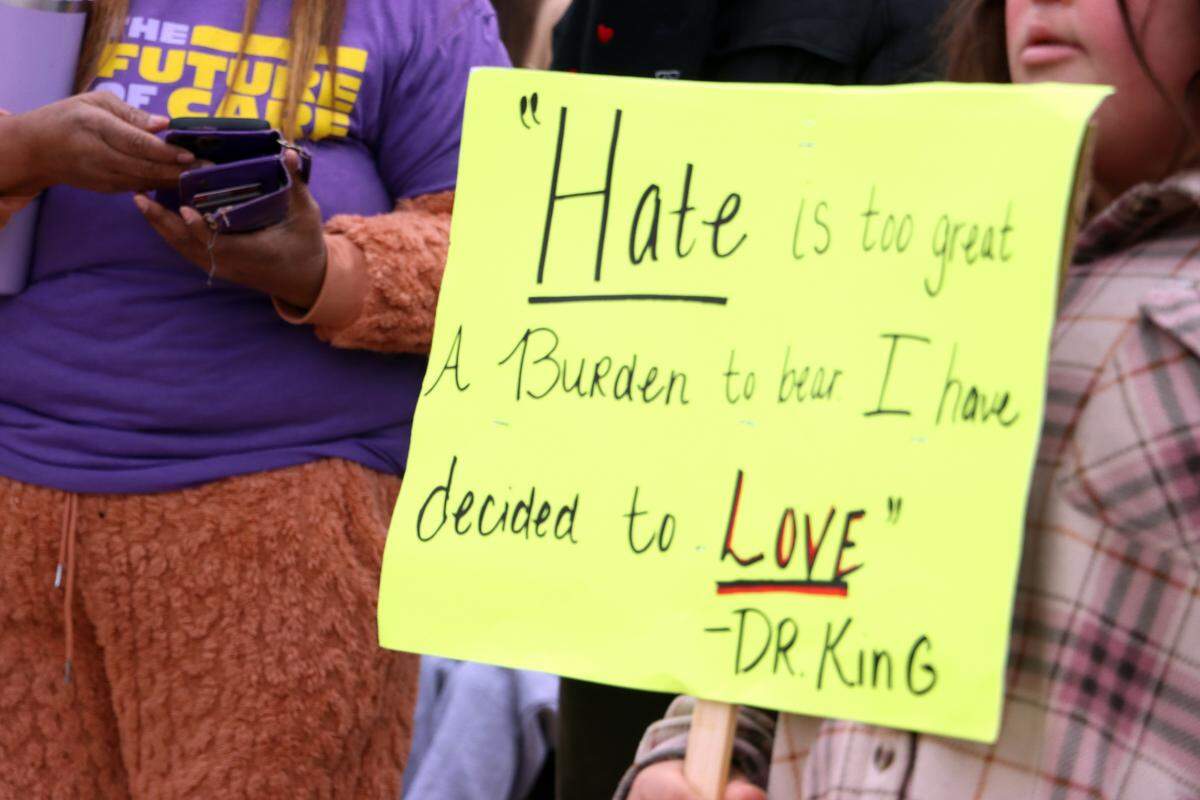 THE
FUTURE
OF CARE
"Hate is too great
A Burden to bear. I have
decided to LOVE"
-DR. King